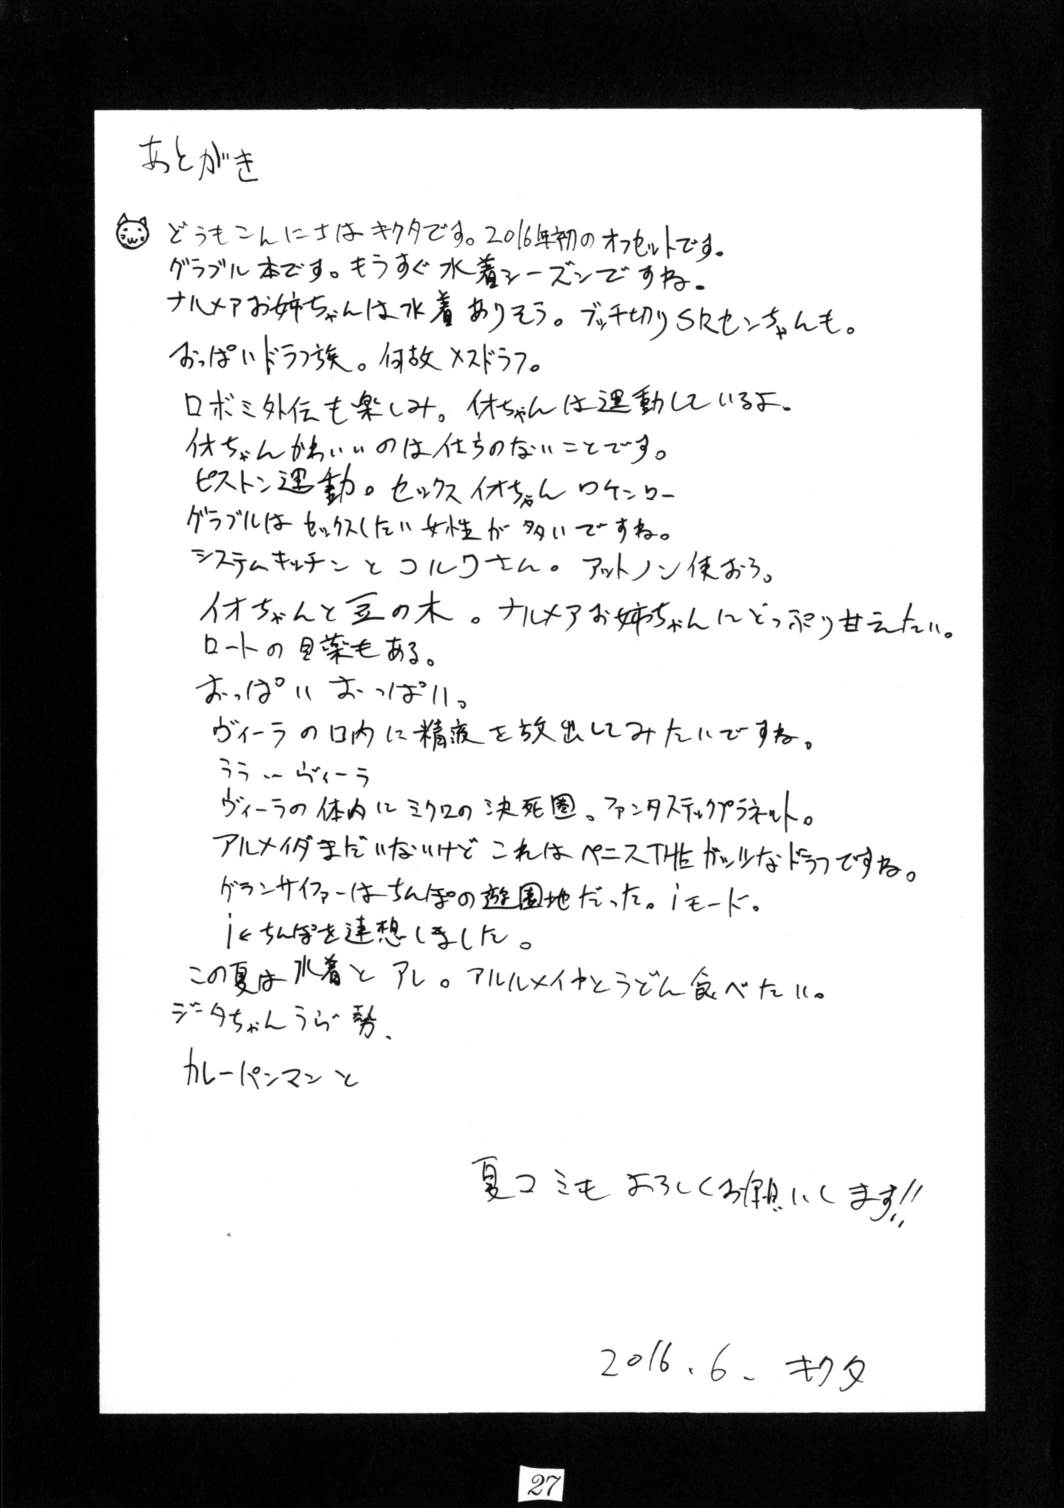 あとがき
どうもこんにちはキクタです。2016年初のオフセットです。
グラブル本です。もうすぐ水着シーズンですね。
ナルメアお姉ちゃんは水着ありそう。ブッチ切りSRセンちゃんも。
おっぱいドラフ族。何故メスドラフ。
ロボミ外伝も楽しみ。
グラブルはセックスしたい女性が多いですね。
システムキッチンとコルワさん。アットノン使おう。
イオちゃんと豆の木。ナルメアお姉ちゃんにどっぷり甘えたい。
ロートの目薬もある。
おっぱい おっぱい。
ヴィーラの口内に精液を放出してみたいですね。
ううーヴィーラ
ヴィーラの体内にミクロの決死圏。ファンタスティックプラネット。
アルメイダまだいないけどこれはペニスTHEガッツなドラフですね。
グランサイファーはちんぽの遊園地だった。iモード。
i←ちんぽを連想しました。
この夏は水着とアレ。アルルメイヤとうどん食べたい。
ジータちゃん
カレーパンマンと
夏コミもよろしくお願いします!!
2016.6. キクタ
27